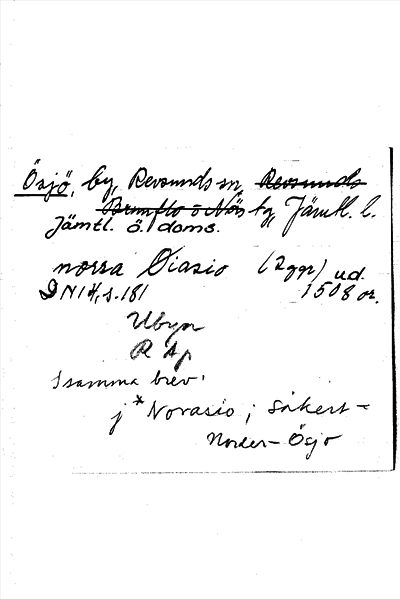 Ösjö, by, Revsunds sn, Revsunds
Brunflo o Näs tg, Jämtl. l.
Jämtl. ö. doms.
norra Øiasio (2 ggr) ud.
DN 14, s. 181 1508 or.
Ubyn
R Ap
I samma brev:
j * Norasio ; säkert =
Norder-Ösjö